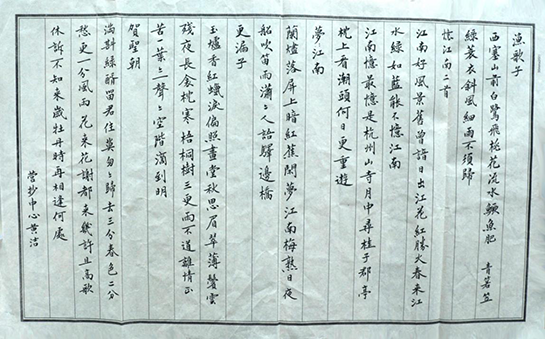 漁歌子
西塞山前白鷺飛桃花流水鱖魚肥 青箬笠
綠蓑衣斜風細雨不須歸
憶江南二首
江南好風景舊曾諳日出江花紅勝火春來江
水綠如藍能不憶江南
江南憶最憶是杭州山寺月中尋桂子郡亭
枕上看潮頭何日更重遊
夢江南
蘭燼落屏上暗紅蕉閒夢江南梅熟日夜
船吹笛雨瀟々人語驛邊橋
更漏子
玉爐香紅蠟淚偏照畫堂秋思眉翠薄鬢雲
殘夜長衾枕寒梧桐樹三更雨不道離情正
苦一葉々一聲々空階滴到明
賀聖朝
滿斟綠醑留君住莫匆々歸去三分春色二分
愁更一分風雨 花來花謝都來幾許且高歌
休訴不知來歲牡丹時再相逢何處
抄中心黄洁